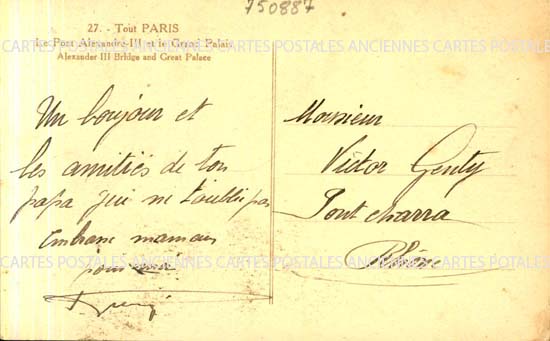 750887
27. - Tout PARIS
Le Pont Alexandre-III et le Grand Palais
Alexander III Bridge and Great Palace
CARTES POSTALES ANCIENNES CARTES POSTALES ANCIENNES CARTES POSTALES
Un bonjour et
les amitiés de ton
papa qui ne t'oublie pas
Embrasse maman
pour
Monsieur
Victor Genty
Pontcharra
CARTES POSTALES ANCIENNES CARTES POSTALES ANCIENNES CARTES POSTALES